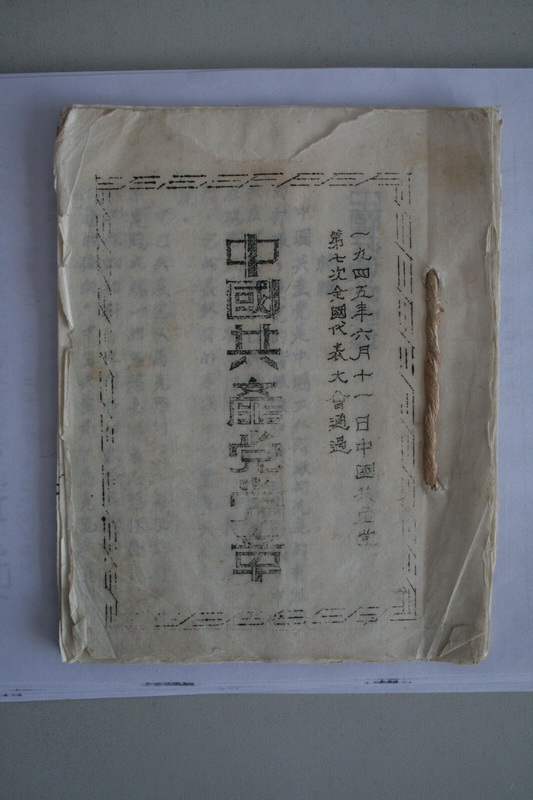 一九四五年六月十一日中國共產党
第七次全國代表大會通過
中國共產党党章